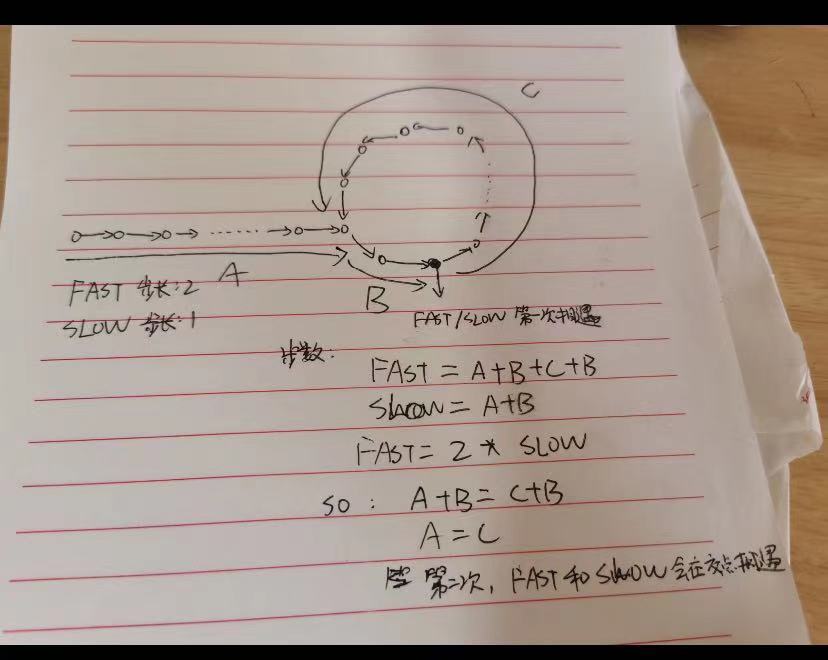 C
A
FAST 步长:2
SLOW 步长:1
B
FAST/SLOW 第一次相遇
步数:
FAST = A+B+C+B
SLOW = A+B
FAST = 2 * SLOW
SO : A+B = C+B
A = C
第二次, FAST 和 SLOW 会在交点相遇